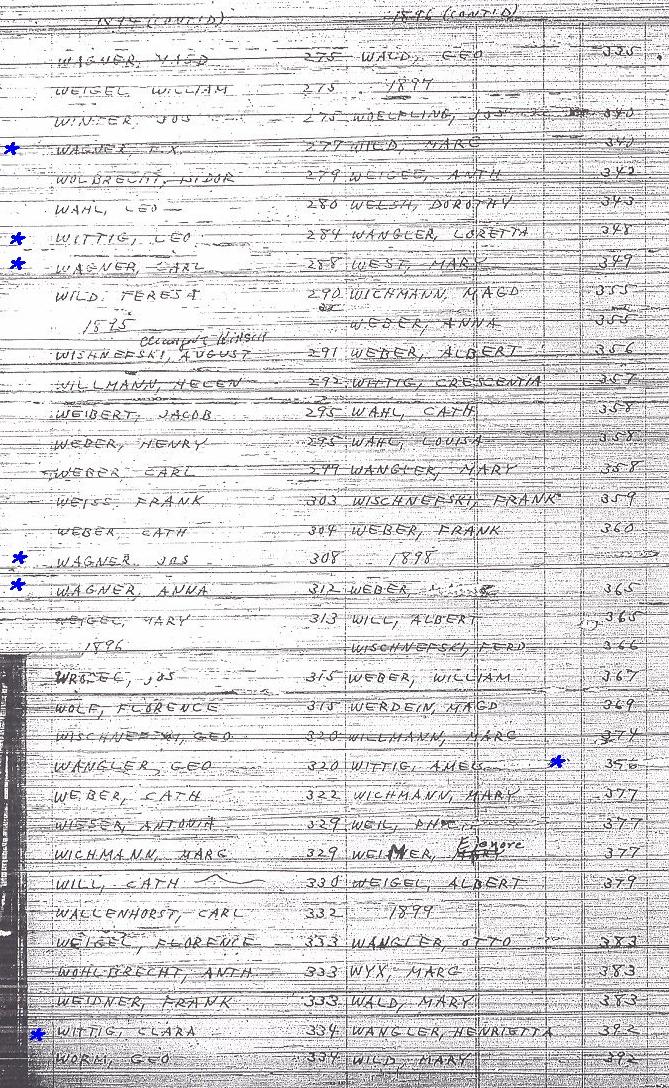 1894 (CONT'D)
WAGNER, MAGD 275
WEIGEL, WILLIAM 275
WINTER, JOS 275
WAGNER, F.X. 277
WOLBRECHT, 279
WAHL, LEO 280
WITTIG, LEO 284
WAGNER, CARL 288
WILD, TERESA 290
1895
WISHNEFSKI, AUGUST 291
WILLMANN, HELEN 292
WEIBERT, JACOB 295
WEBER, HENRY 295
WEBER, CARL 299
WEISS, FRANK 303
WEBER, CATH 304
WAGNER, JOS 308
WAGNER, ANNA 312
WEIGEL, MARY 313
1896
JOS 315
WOLF, FLORENCE 315
WISCHNEFSKI, GEO 320
WANGLER, GEO 320
WEBER, CATH 322
WIESER, ANTONIA 329
WICHMANN, MARG 329
WILL, CATH 330
WALLENHORST, CARL 332
WEIGEL, FLORENCE 333
WOHLBRECHT, ANTH 333
WEIDNER, FRANK 333
WITTIG, CLARA 334
WORM, GEO 334
1896 (CONT'D)
WALD, GEO 335
1897
WOELFLING, JOS 340
WILD, MARG 340
WEIGEL, ANTH 342
WELSH, DOROTHY 343
WANGLER, LORETTA 348
WEST, MARY 349
WICHMANN, MAGD 355
WEBER, ANNA 355
WEBER, ALBERT 356
WITTIG, CRESCENTIA 357
WAHL, CATH 358
WAHL, LOUISA 358
WANGLER, MARY 358
WISCHNEFSKI, FRANK 359
WEBER, FRANK 360
1898
WEBER, 365
WILL, ALBERT 365
WISCHNEFSKI, FERD 366
WEBER, WILLIAM 367
WERDEIN, MAGD 369
WILLMANN, MARG 374
WITTIG, 376
WICHMANN, MARY 377
WEIL, 377
WEIMER, Elenore 377
WEIGEL, ALBERT 379
1899
WANGLER, OTTO 383
WYX, MARG 383
WALD, MARY 383
WANGLER, HENRIETTA 392
WILD, MARY 392